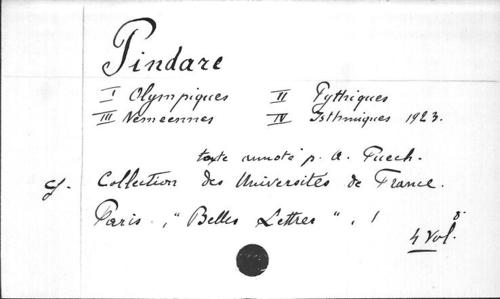 Pindare
I Olympiques II Pythiques
III Nemeennes IV Isthmiques 1923.
texte annoté p. A. Puech.
Collection des Universités de France.
Paris. "Belles Lettres",
4 vol. 8°